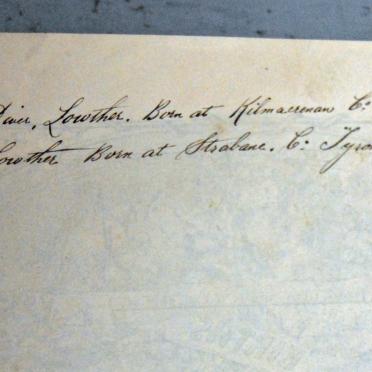 Lowther. Born at Kilmacrenan Co:
Lowther Born at Strabane. Co: Tyro